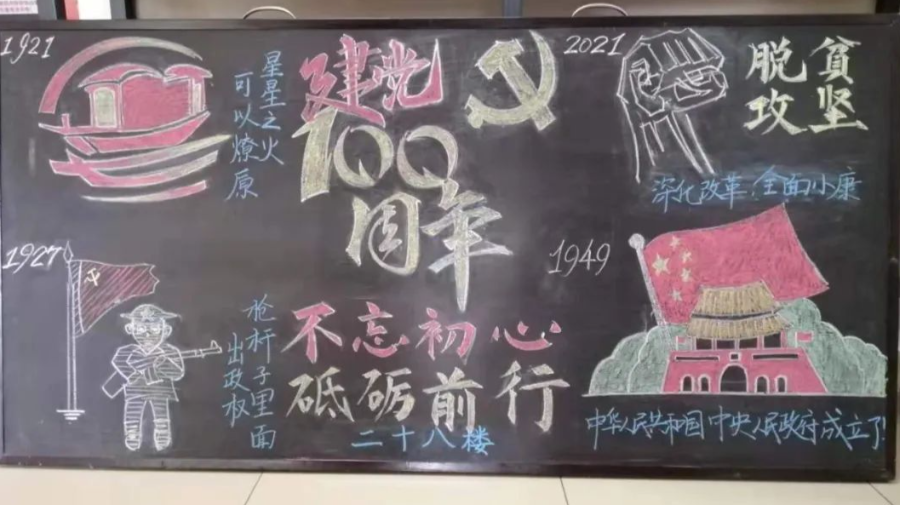 1921
星星之火
可以燎原
建党
100
周年
2021
脱贫
攻坚
深化改革 全面小康
1927
枪杆子里面
出政权
不忘初心
砥砺前行
二十八楼
1949
中华人民共和国中央人民政府成立了